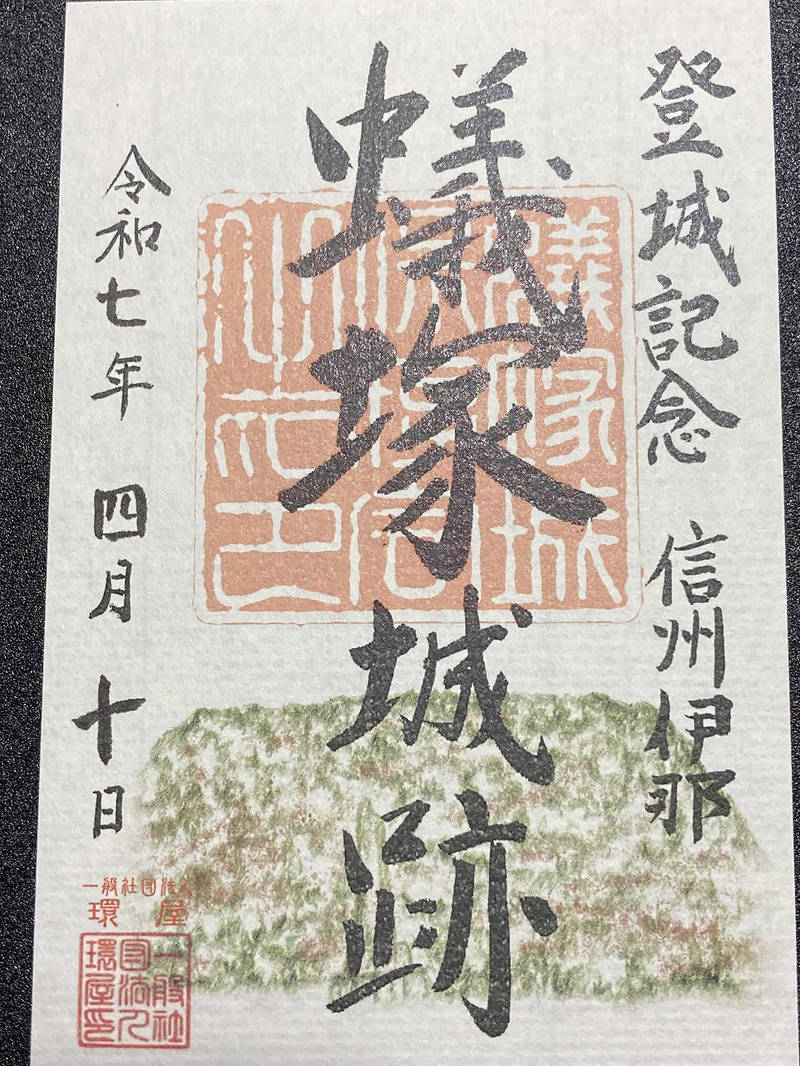 登城記念 信州伊那
蟻塚城跡
令和七年 四月 十日
一般社団法人
環屋
一般社
団法人
環屋印